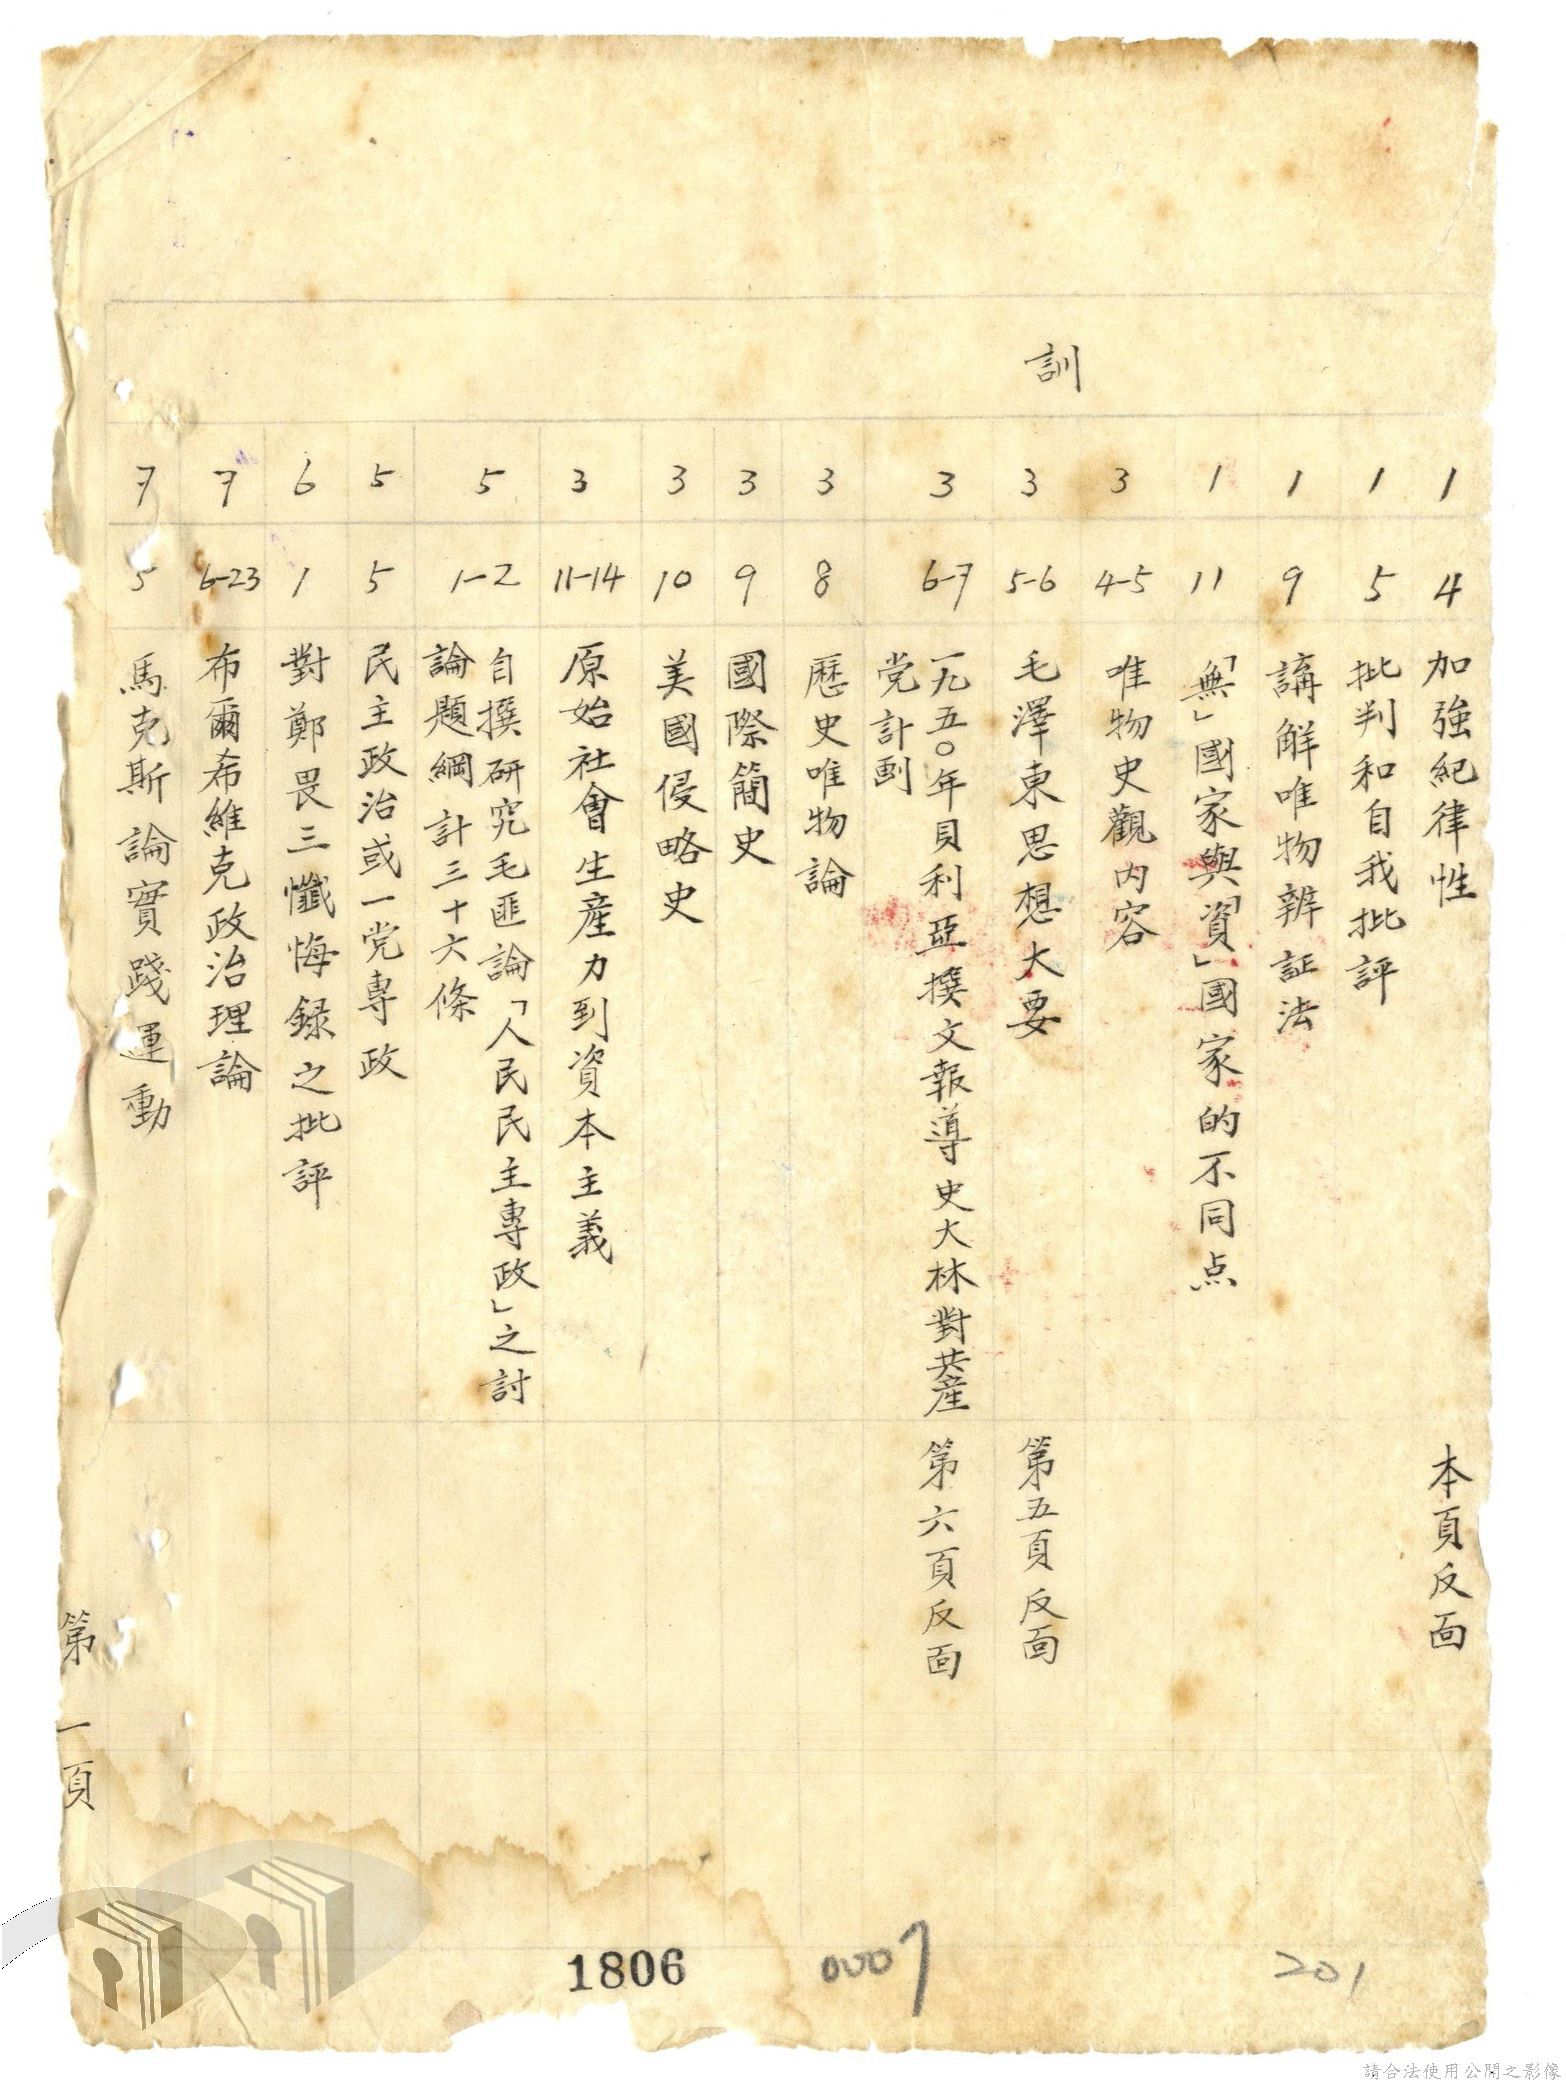 訓
1 4 加強紀律性 本頁反面
1 5 批判和自我批評
1 9 講解唯物辨証法
1 11 「無」國家與「資」國家的不同点
3 4-5 唯物史觀內容
3 5-6 毛澤東思想大要 第五頁反面
3 6-7 一九五〇年貝利亞撰文報導史大林對共產
党計劃 第六頁反面
3 8 歷史唯物論
3 9 國際簡史
3 10 美國侵略史
3 11-14 原始社會生產力到資本主義
5 1-2 自撰研究毛匪論「人民民主專政」之討
論題綱計三十六條
5 5 民主政治或一党專政
6 1 對鄭畏三懺悔録之批評
7 6-23 布爾希維克政治理論
7 5 馬克斯論實踐運動
第一頁
1806
00007
201
請合法使用公開之影像